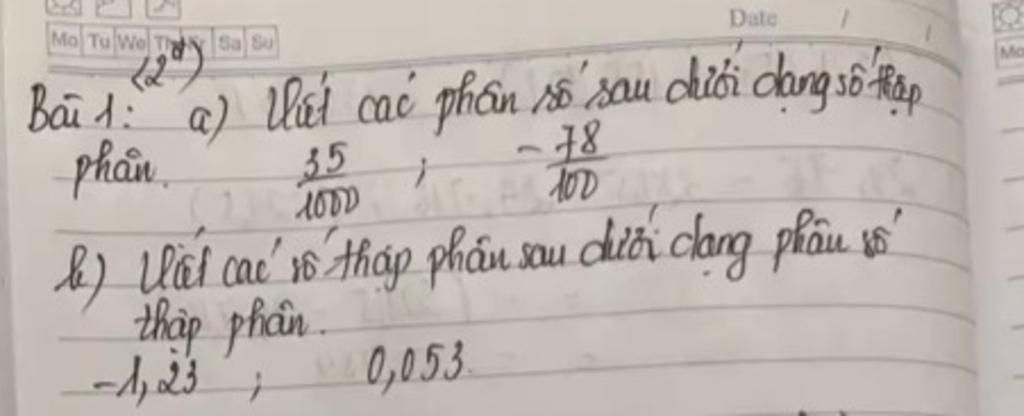 Date / /
Mo Tu We Th Fr Sa Su
(2đ)
Bài 1: a) Viết các phân số sau dưới dạng số thập
phân. 35/1000 ; -78/100
b) Viết các số thập phân sau dưới dạng phân số
thập phân.
-1,23 ; 0,053.
Mo